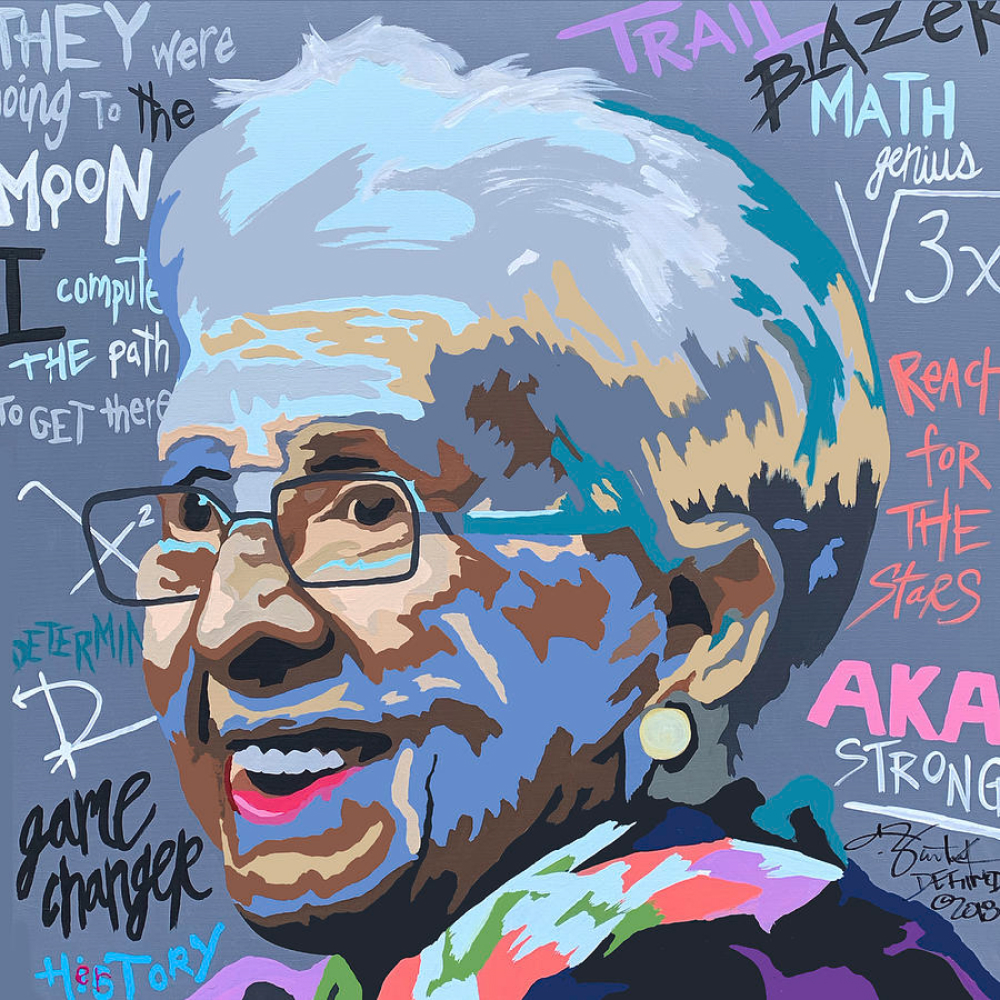 THEY were
going TO the
MOON
I compute
THE path
TO GET there
X²
DETERMIN
R
game
changer
HerSTORY
TRAIL
BLAZER
MATH
genius
√3x
REACH
foR
THE
StaRS
AKA
STRONG
DEFINED
©2018